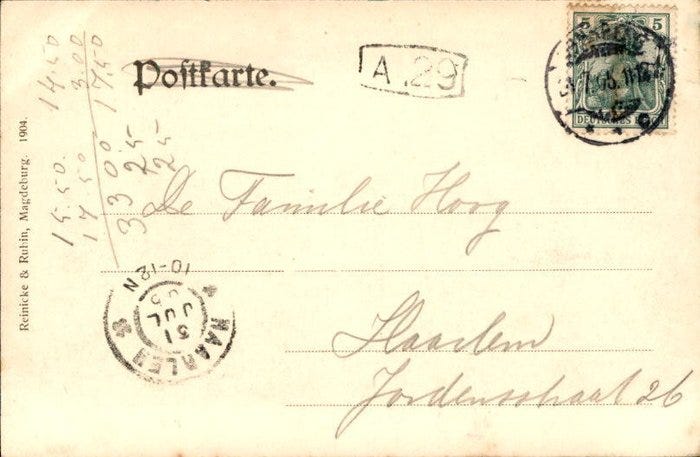 Postkarte.
A .29
5 5
DEUTSCHES REICH
De Familie Hoog
Haarlem
Jordensstraat 26
HAARLEM
31
JUL
05
10-12N
15.50. 14.50
17 50 3.00
17.50
33 00
25
25
Reinicke & Rubin, Magdeburg. 1904.